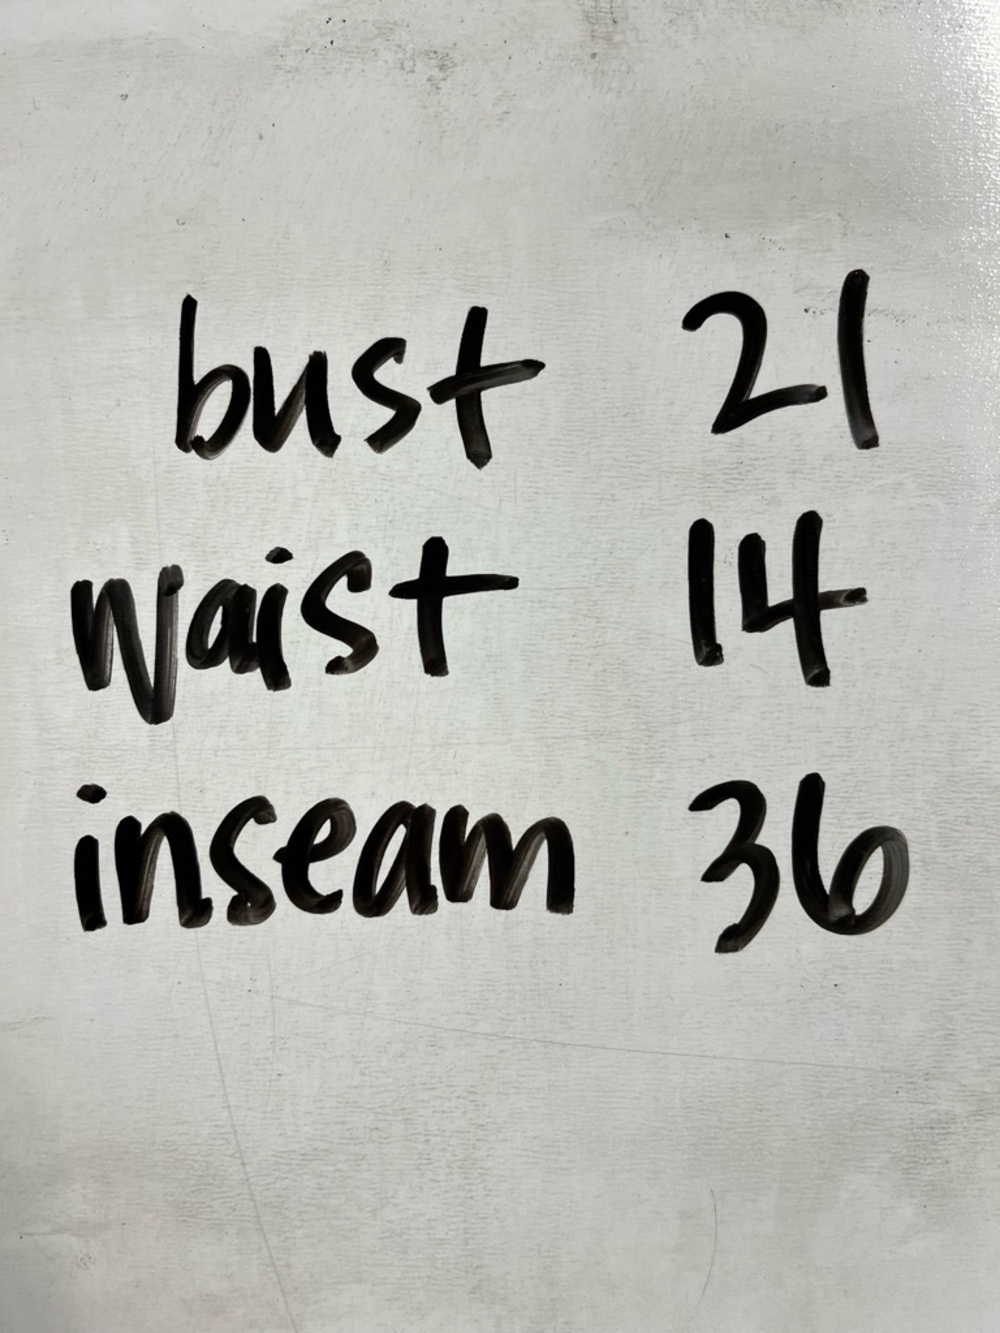 bust 21
waist 14
inseam 36